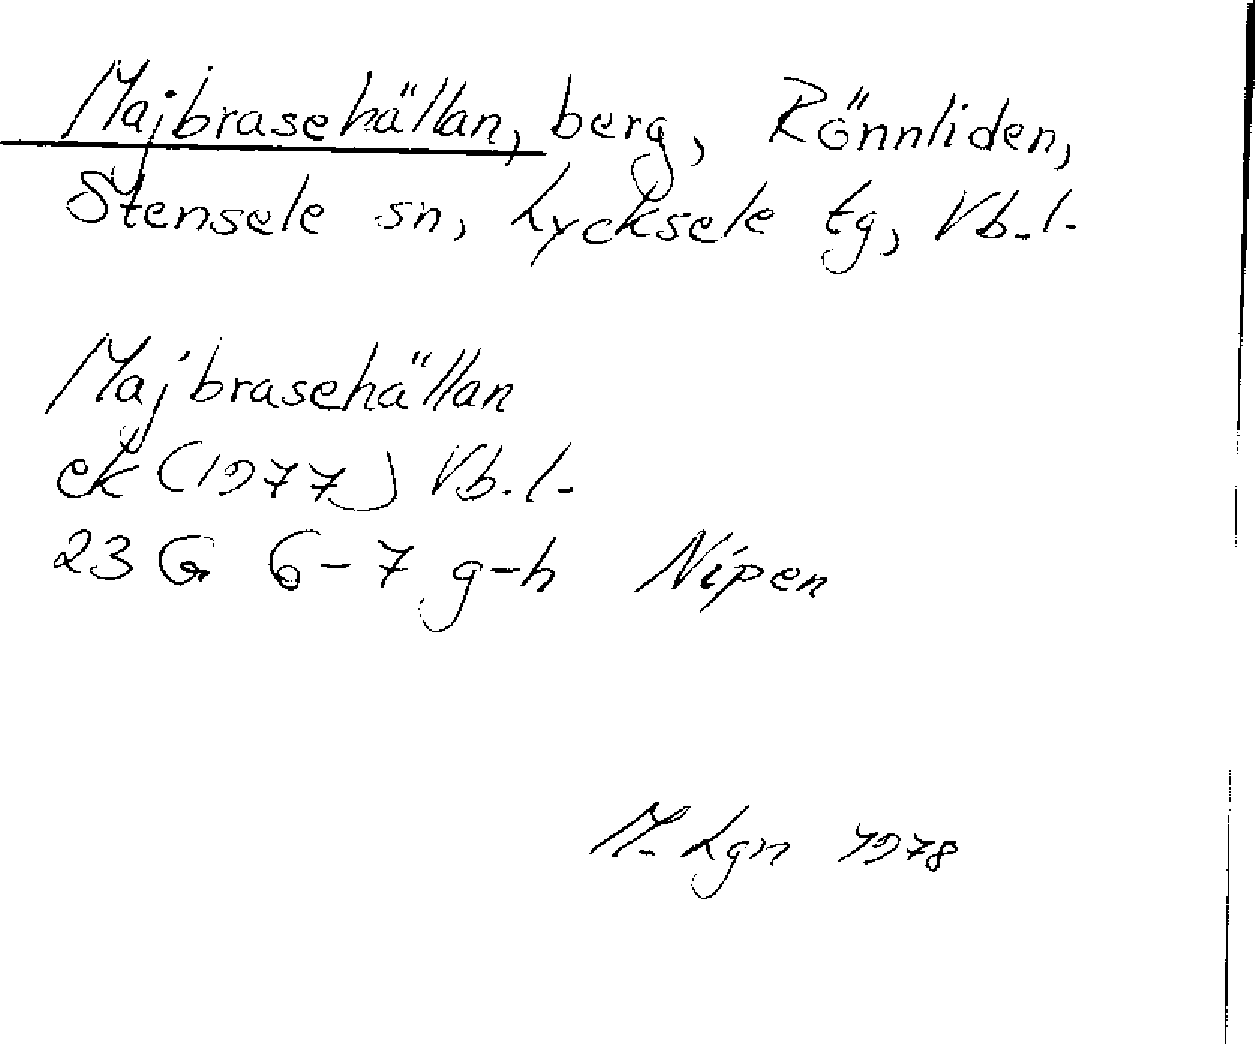 Majbrasehällan, berg, Rönnliden,
Stensele sn, Lycksele tg, Vb.l.
Majbrasehällan
ek (1977) Vb.l.
23 G 6-7 g-h Nipen
M. Lgn 1978